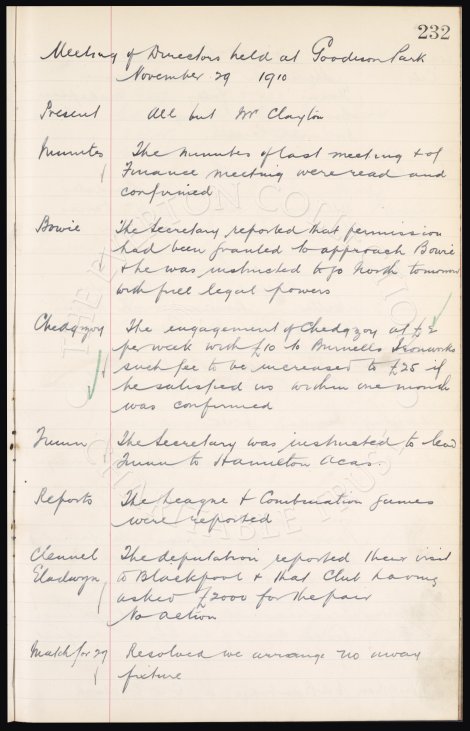 232
Meeting of Directors held at Goodison Park
November 29 1910
Present All but Mr Clayton
Minutes The minutes of last meeting & of
Finance meeting were read and
confirmed
Bowie The Secretary reported that permission
had been granted to approach Bowie
& he was instructed to go North tomorrow
with full legal powers
Chedgzoy The engagement of Chedgzoy at £2
per week with £10 to Burnells Ironworks
such fee to be increased to £25 if
he satisfied us within one month
was confirmed
The Secretary was instructed to
to Hamilton Acas.
Reports The League & Combination games
were reported
Clennel The deputation reported their visit
Gladwyn to Blackpool & that Club having
asked £2000 for the pair
No action
Match for 29 Resolved we arrange no away
fixture
THE EVERTON COLLECTION
CHARITABLE TRUST